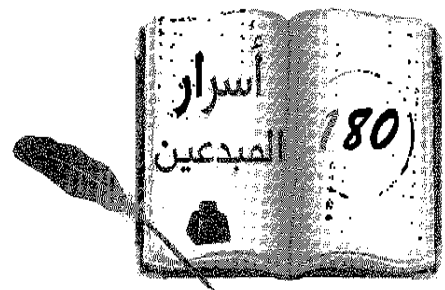 أسرار
المبدعين
80